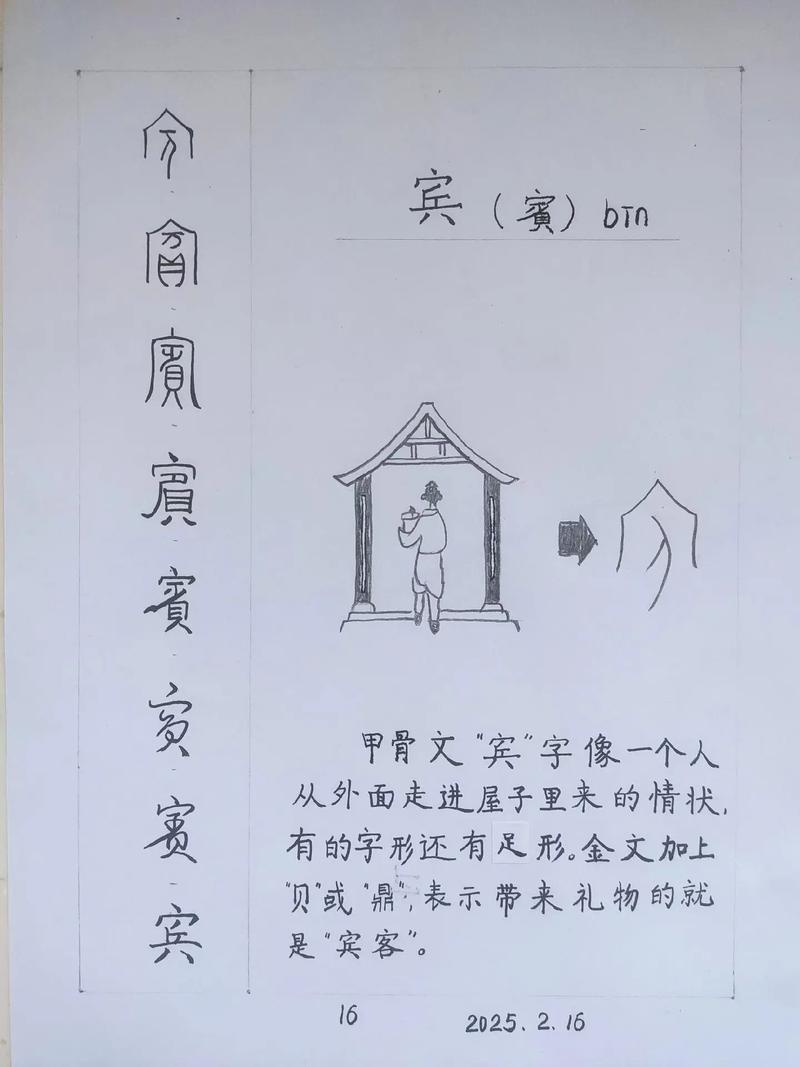 宾（賓）bīn
甲骨文“宾”字像一个人
从外面走进屋子里来的情状,
有的字形还有足形。金文加上
“贝”或“鼎”,表示带来礼物的就
是“宾客”。
賓
賓
賓
賓
宾
16
2025.2.16